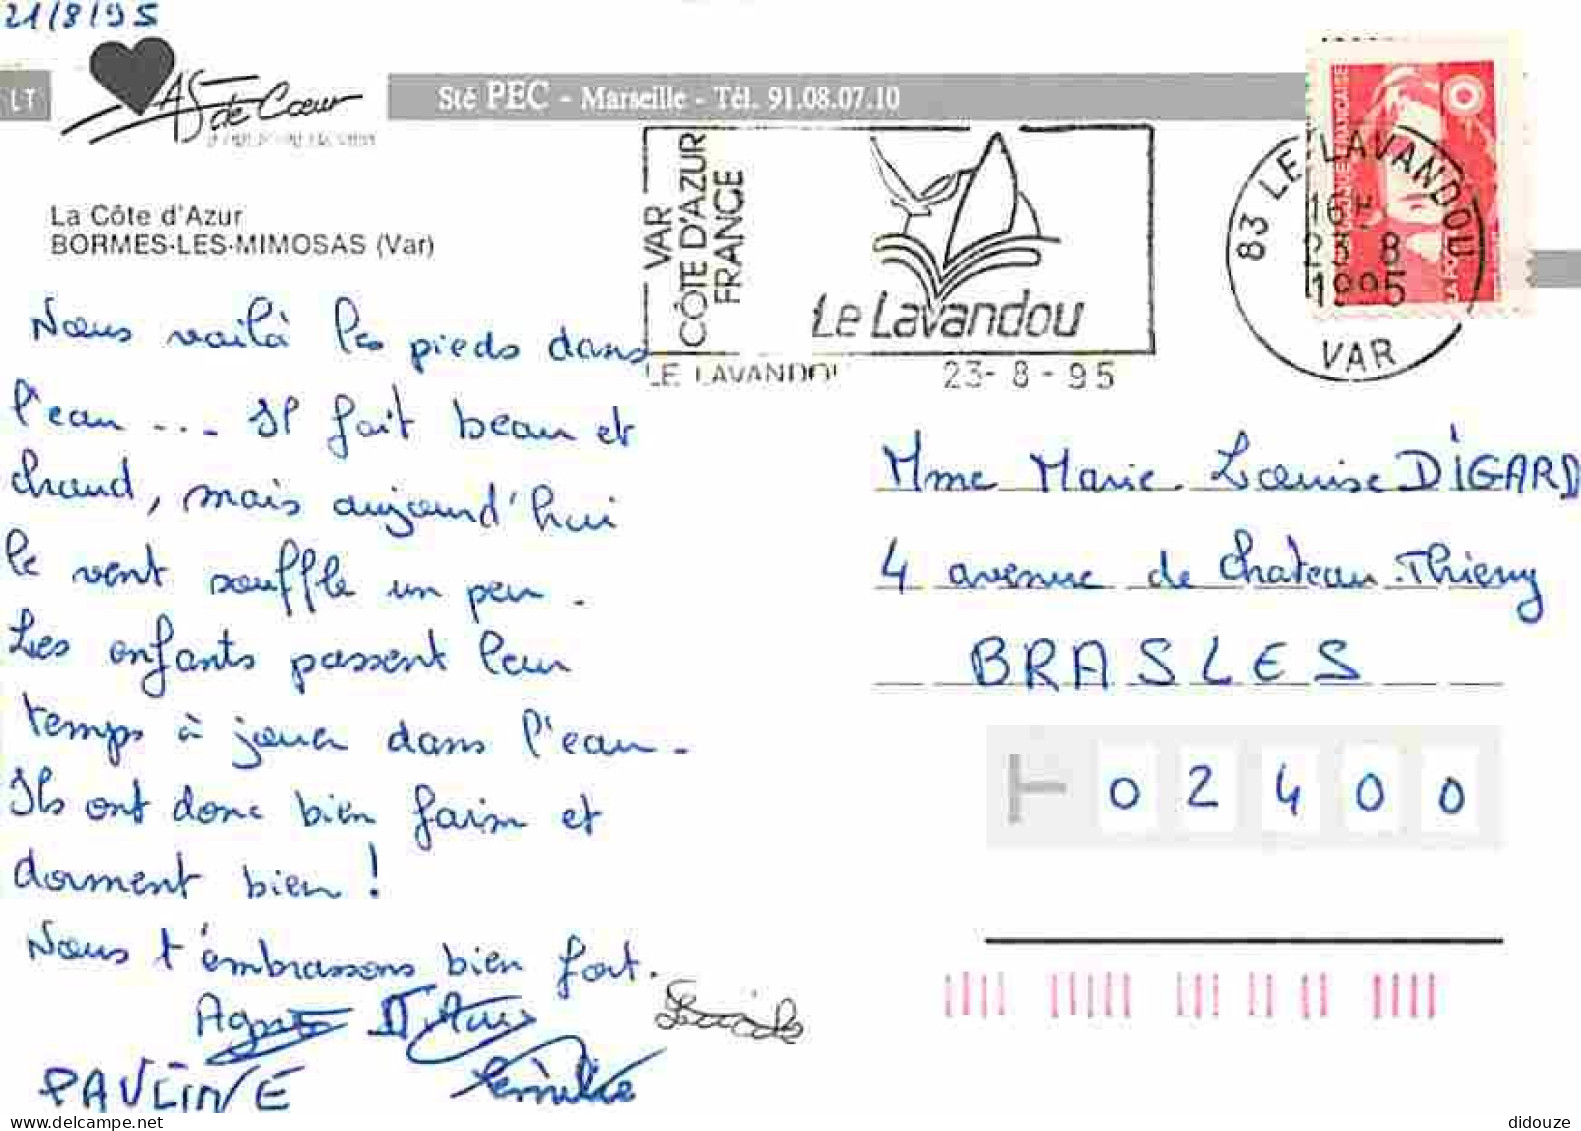 21/8/95
LT
AS de Cœur
Sté PEC - Marseille - Tél. 91.08.07.10
La Côte d'Azur
BORMES-LES-MIMOSAS (Var)
VAR
CÔTE D'AZUR
FRANCE
Le Lavandou
LE LAVANDOU 23-8-95
83 LE LAVANDOU
16H
23 8
1995
VAR
Nous voilà les pieds dans
l'eau ... Il fait beau et
chaud, mais aujourd'hui
le vent souffle un peu.
Les enfants passent leur
temps à jouer dans l'eau.
Ils ont donc bien faim et
dorment bien !
Nous t'embrassons bien fort.
PAULINE
Mme Marie Louise DIGARD
4 avenue de Chateau-Thierry
BRASLES
02400
didouze